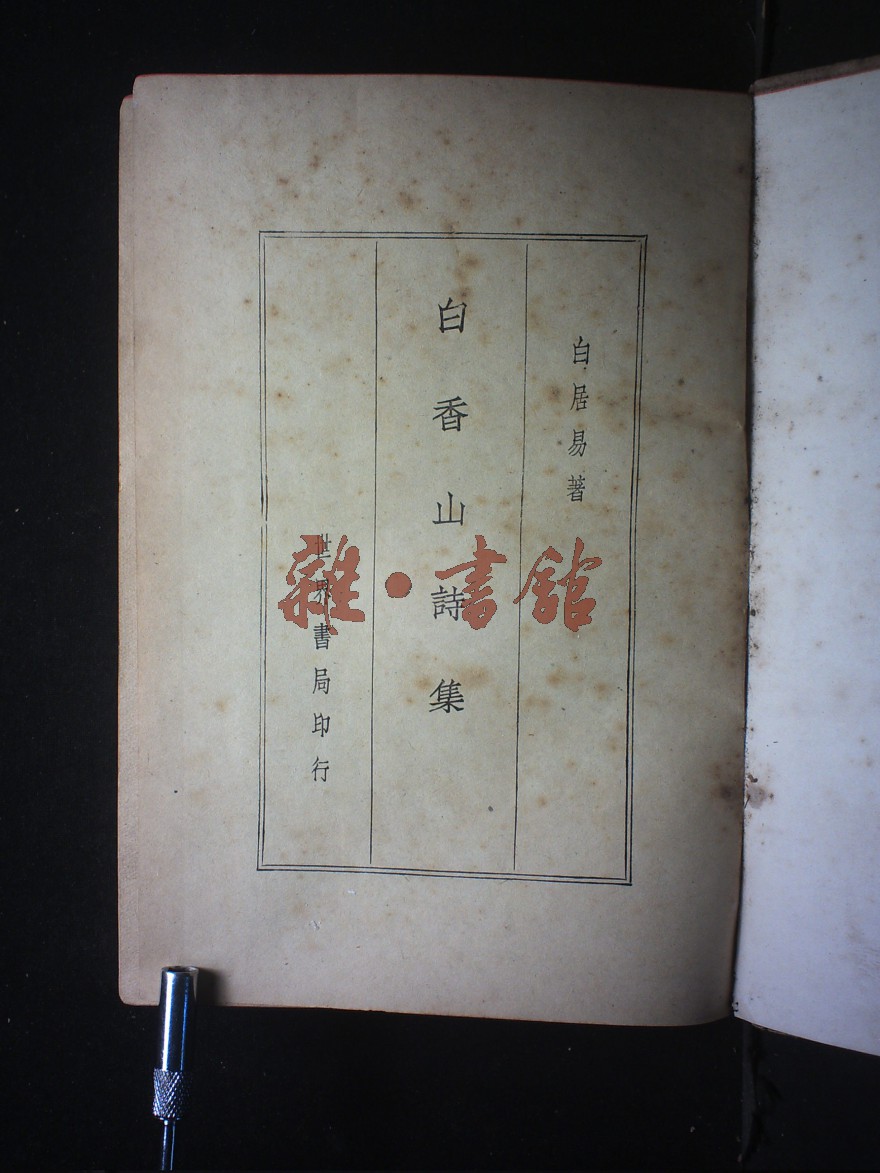 白居易著
白香山詩集
世界書局印行
雜·書館